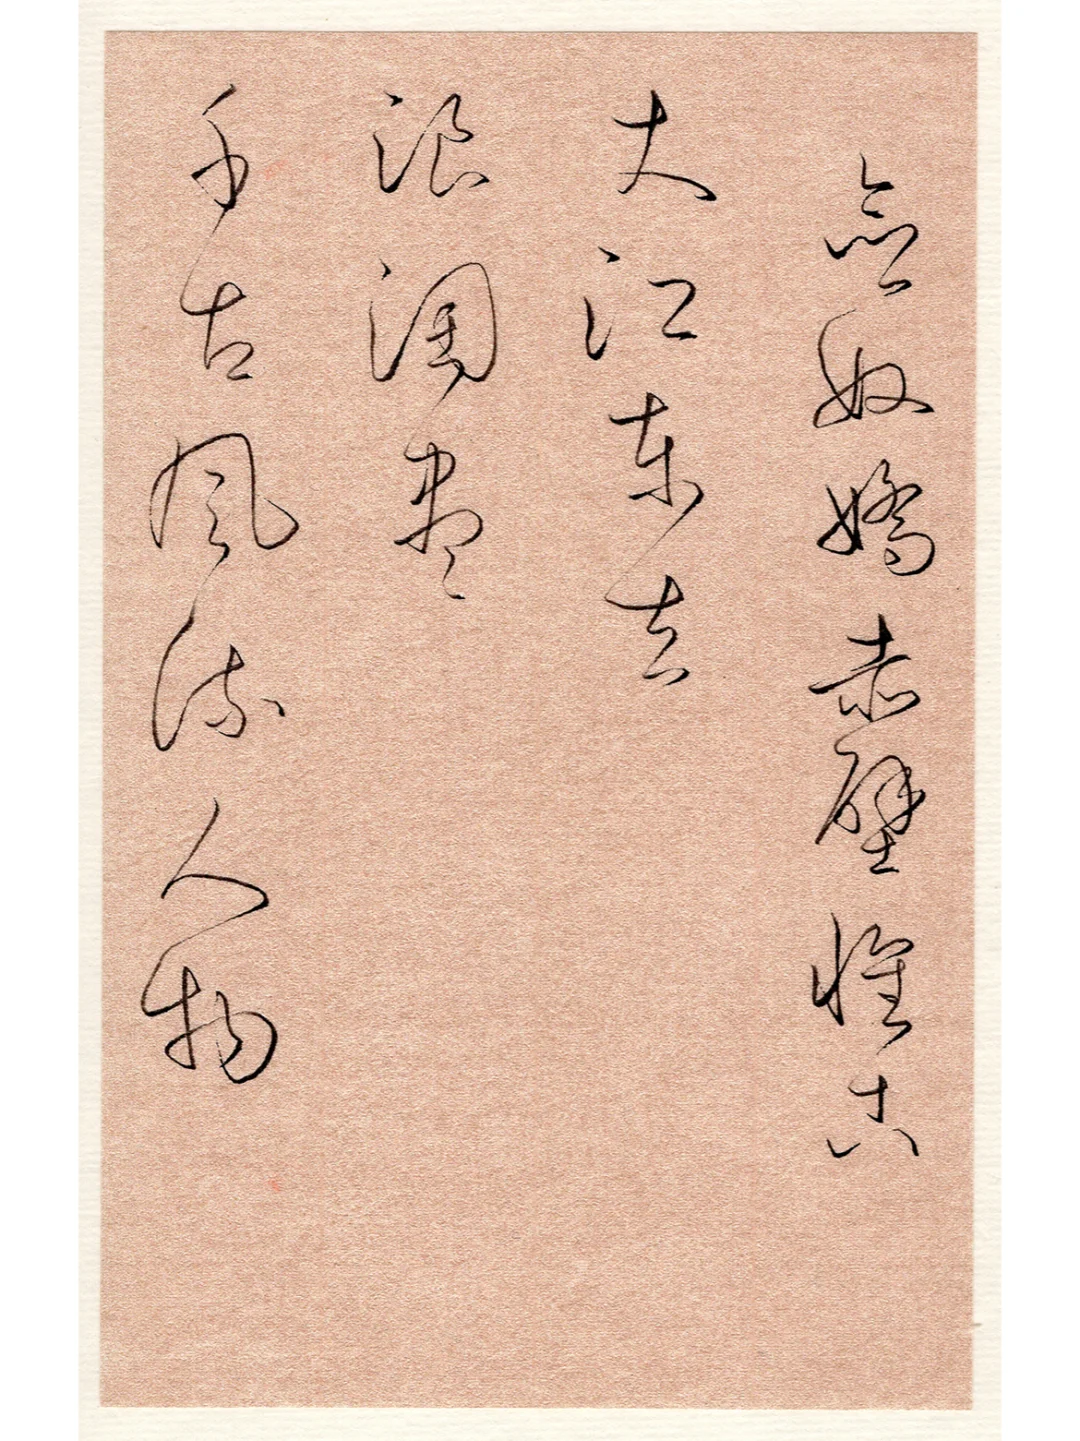 念奴娇赤壁怀古
大江东去
浪淘尽
千古风流人物